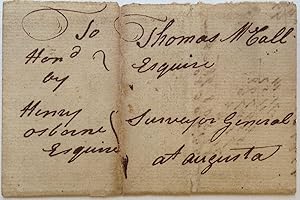 To
Hon'd
by
Henry
Osborne
Esquire
Thomas McCall
Esquire
Surveyor General
at augusta